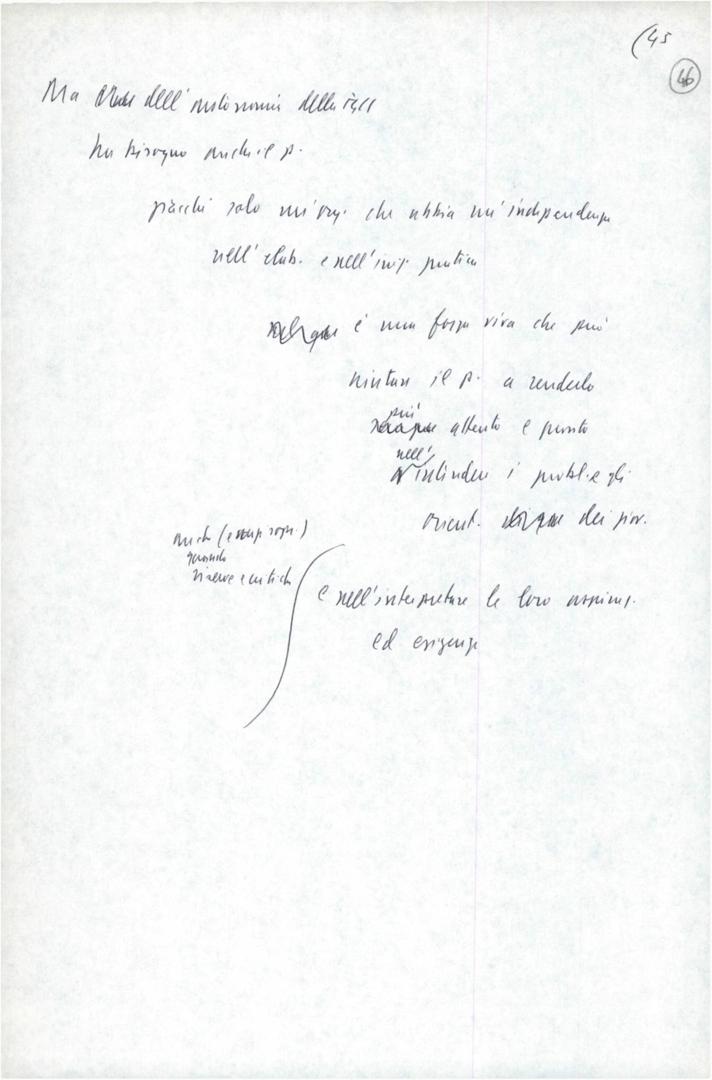 (45
46
Ma dell'autonomia della FGCI
ha bisogno anche il p.
giacchè solo un'org. che abbia un'indipendenza
nell'elab. e nell'iniz. pratica
è una forza viva che può
aiutare il p. a renderlo
più
attento e pronto
nell'
intendere i probl. e gli
orient. dei giov.
anche
quando
riserve e critiche
e nell'interpretare le loro aspiraz.
ed esigenze